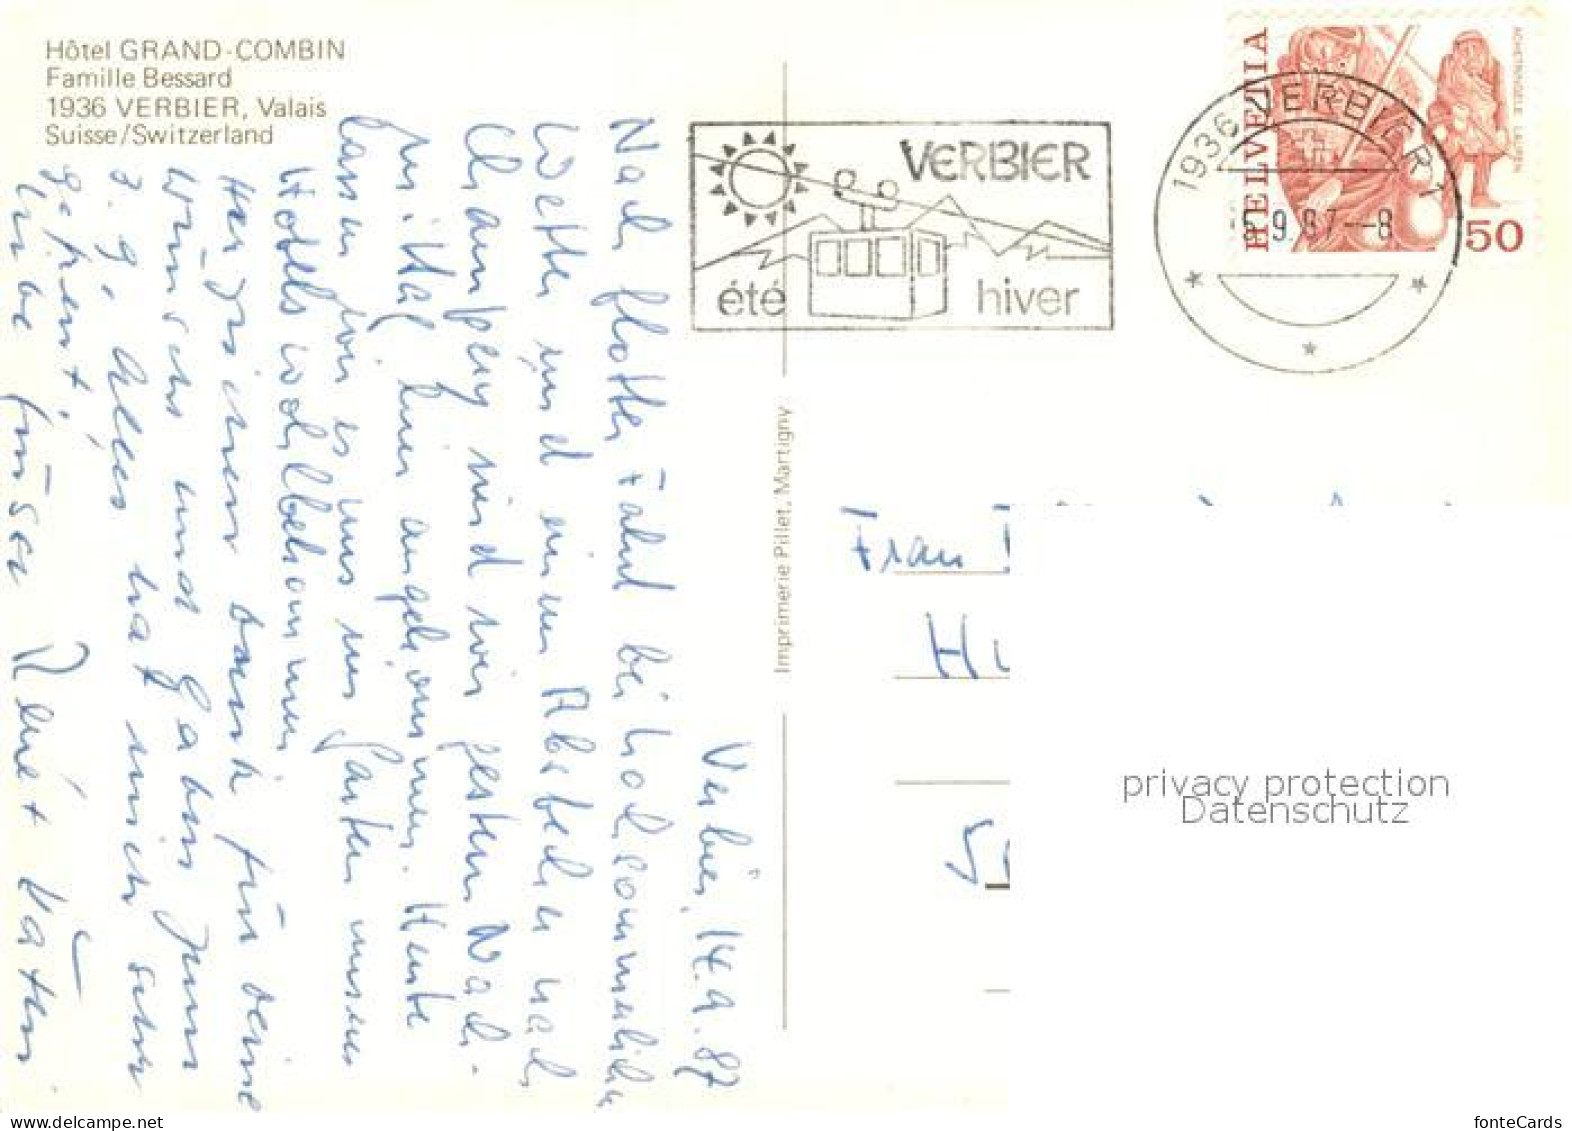 Hôtel GRAND-COMBIN
Famille Bessard
1936 VERBIER, Valais
Suisse/Switzerland
VERBIER
été hiver
1936 VERBIER 1
5.9.87--8
HELVETIA
ACHETRINGELE LAUPEN
50
Imprimerie Pillet, Martigny
Verbier, 14.9.87
Nach flotter Fahrt bei hochsommerlichem
Wetter und einem Abstecher nach
Champery sind wir gestern Nach-
mittag hier angekommen. Heute
lassen wir es uns im Garten unseres
Hotels wohlbekommen.
Herzlichen Dank für deine
Wünsche und Gaben zum
3. 9. Alles hat mich sehr
gefreut.
Liebe Grüsse
Frau
privacy protection
Datenschutz
www.delcampe.net
fonteCards